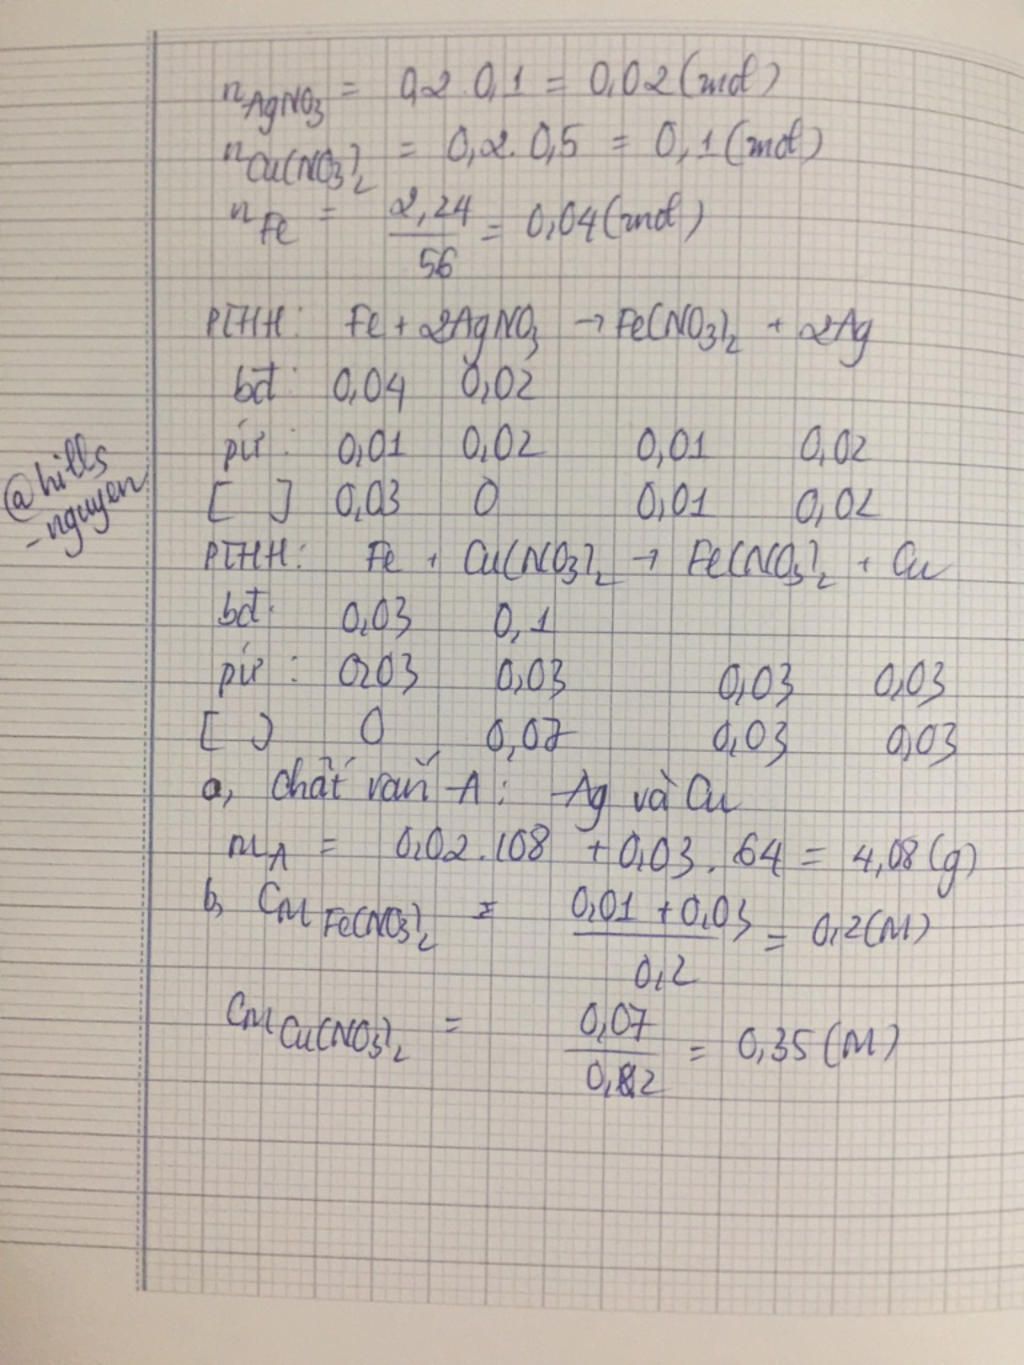 nAgNO3 = 0,2.0,1 = 0,02 (mol)
nCu(NO3)2 = 0,2.0,5 = 0,1 (mol)
nFe = 2,24/56 = 0,04 (mol)
PTHH: Fe + 2AgNO3 → Fe(NO3)2 + 2Ag
bđ: 0,04 0,02
pứ: 0,01 0,02 0,01 0,02
[ ] 0,03 0 0,01 0,02
@hills_nguyen
PTHH: Fe + Cu(NO3)2 → Fe(NO3)2 + Cu
bđ: 0,03 0,1
pứ: 0,03 0,03 0,03 0,03
[ ] 0 0,07 0,03 0,03
a, Chất rắn A: Ag và Cu
mA = 0,02.108 + 0,03.64 = 4,08 (g)
b, CM Fe(NO3)2 = 0,01 + 0,03/0,2 = 0,2 (M)
CM Cu(NO3)2 = 0,07/0,2 = 0,35 (M)